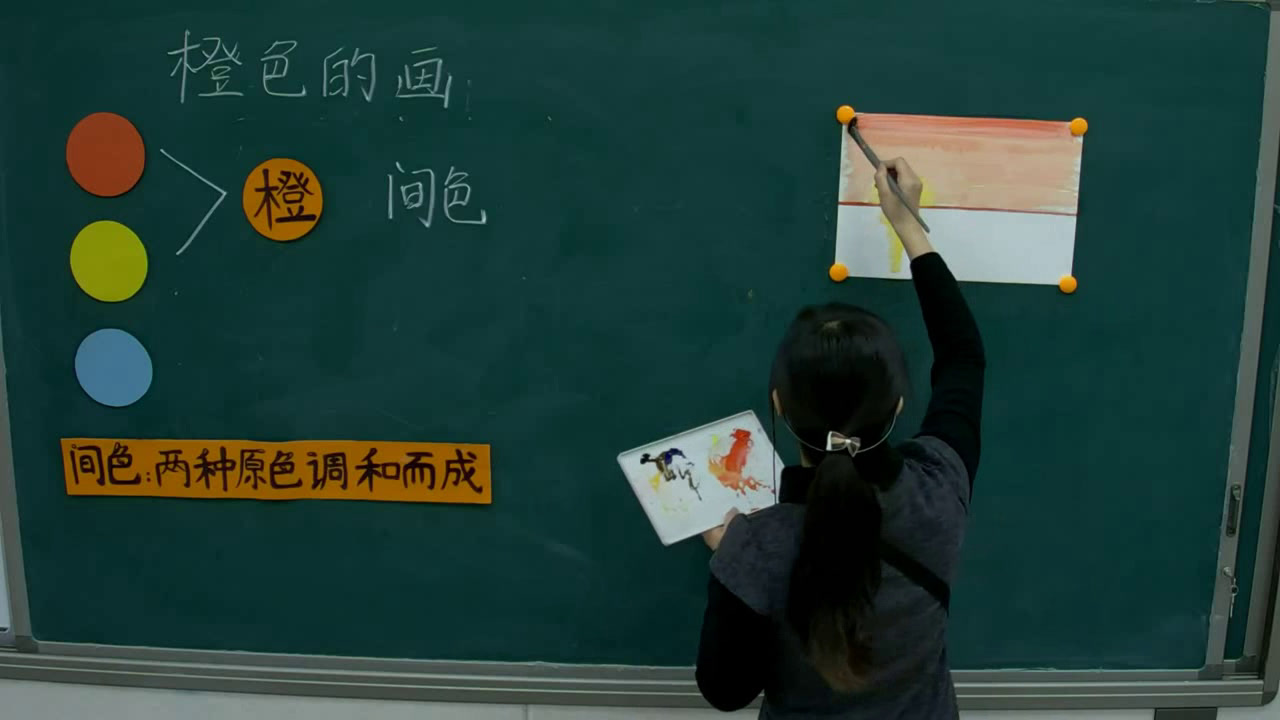 橙色的画
橙
间色
间色:两种原色调和而成